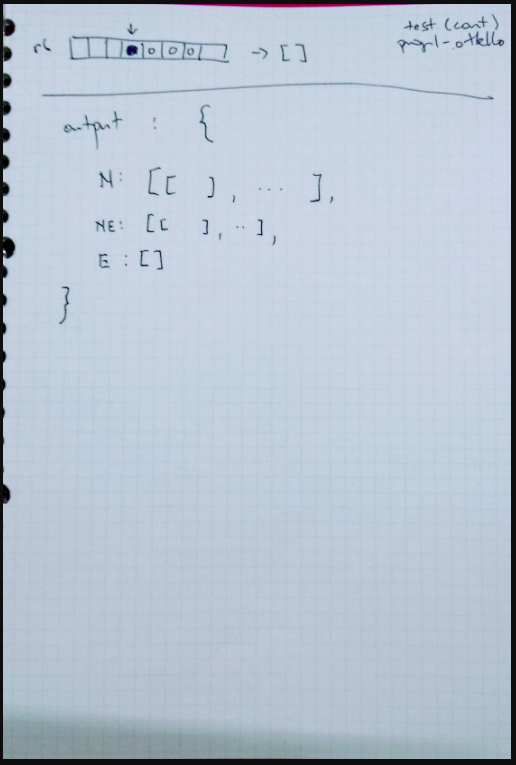 test (cont)
prog1-othello
r6 ↓ ● o o o → []
output : {
N: [[ ], ... ],
NE: [[ ], ..],
E : []
}